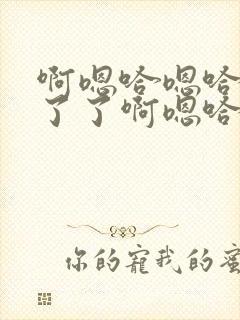 啊嗯哈嗯哈
了了啊嗯哈
你的寵我的